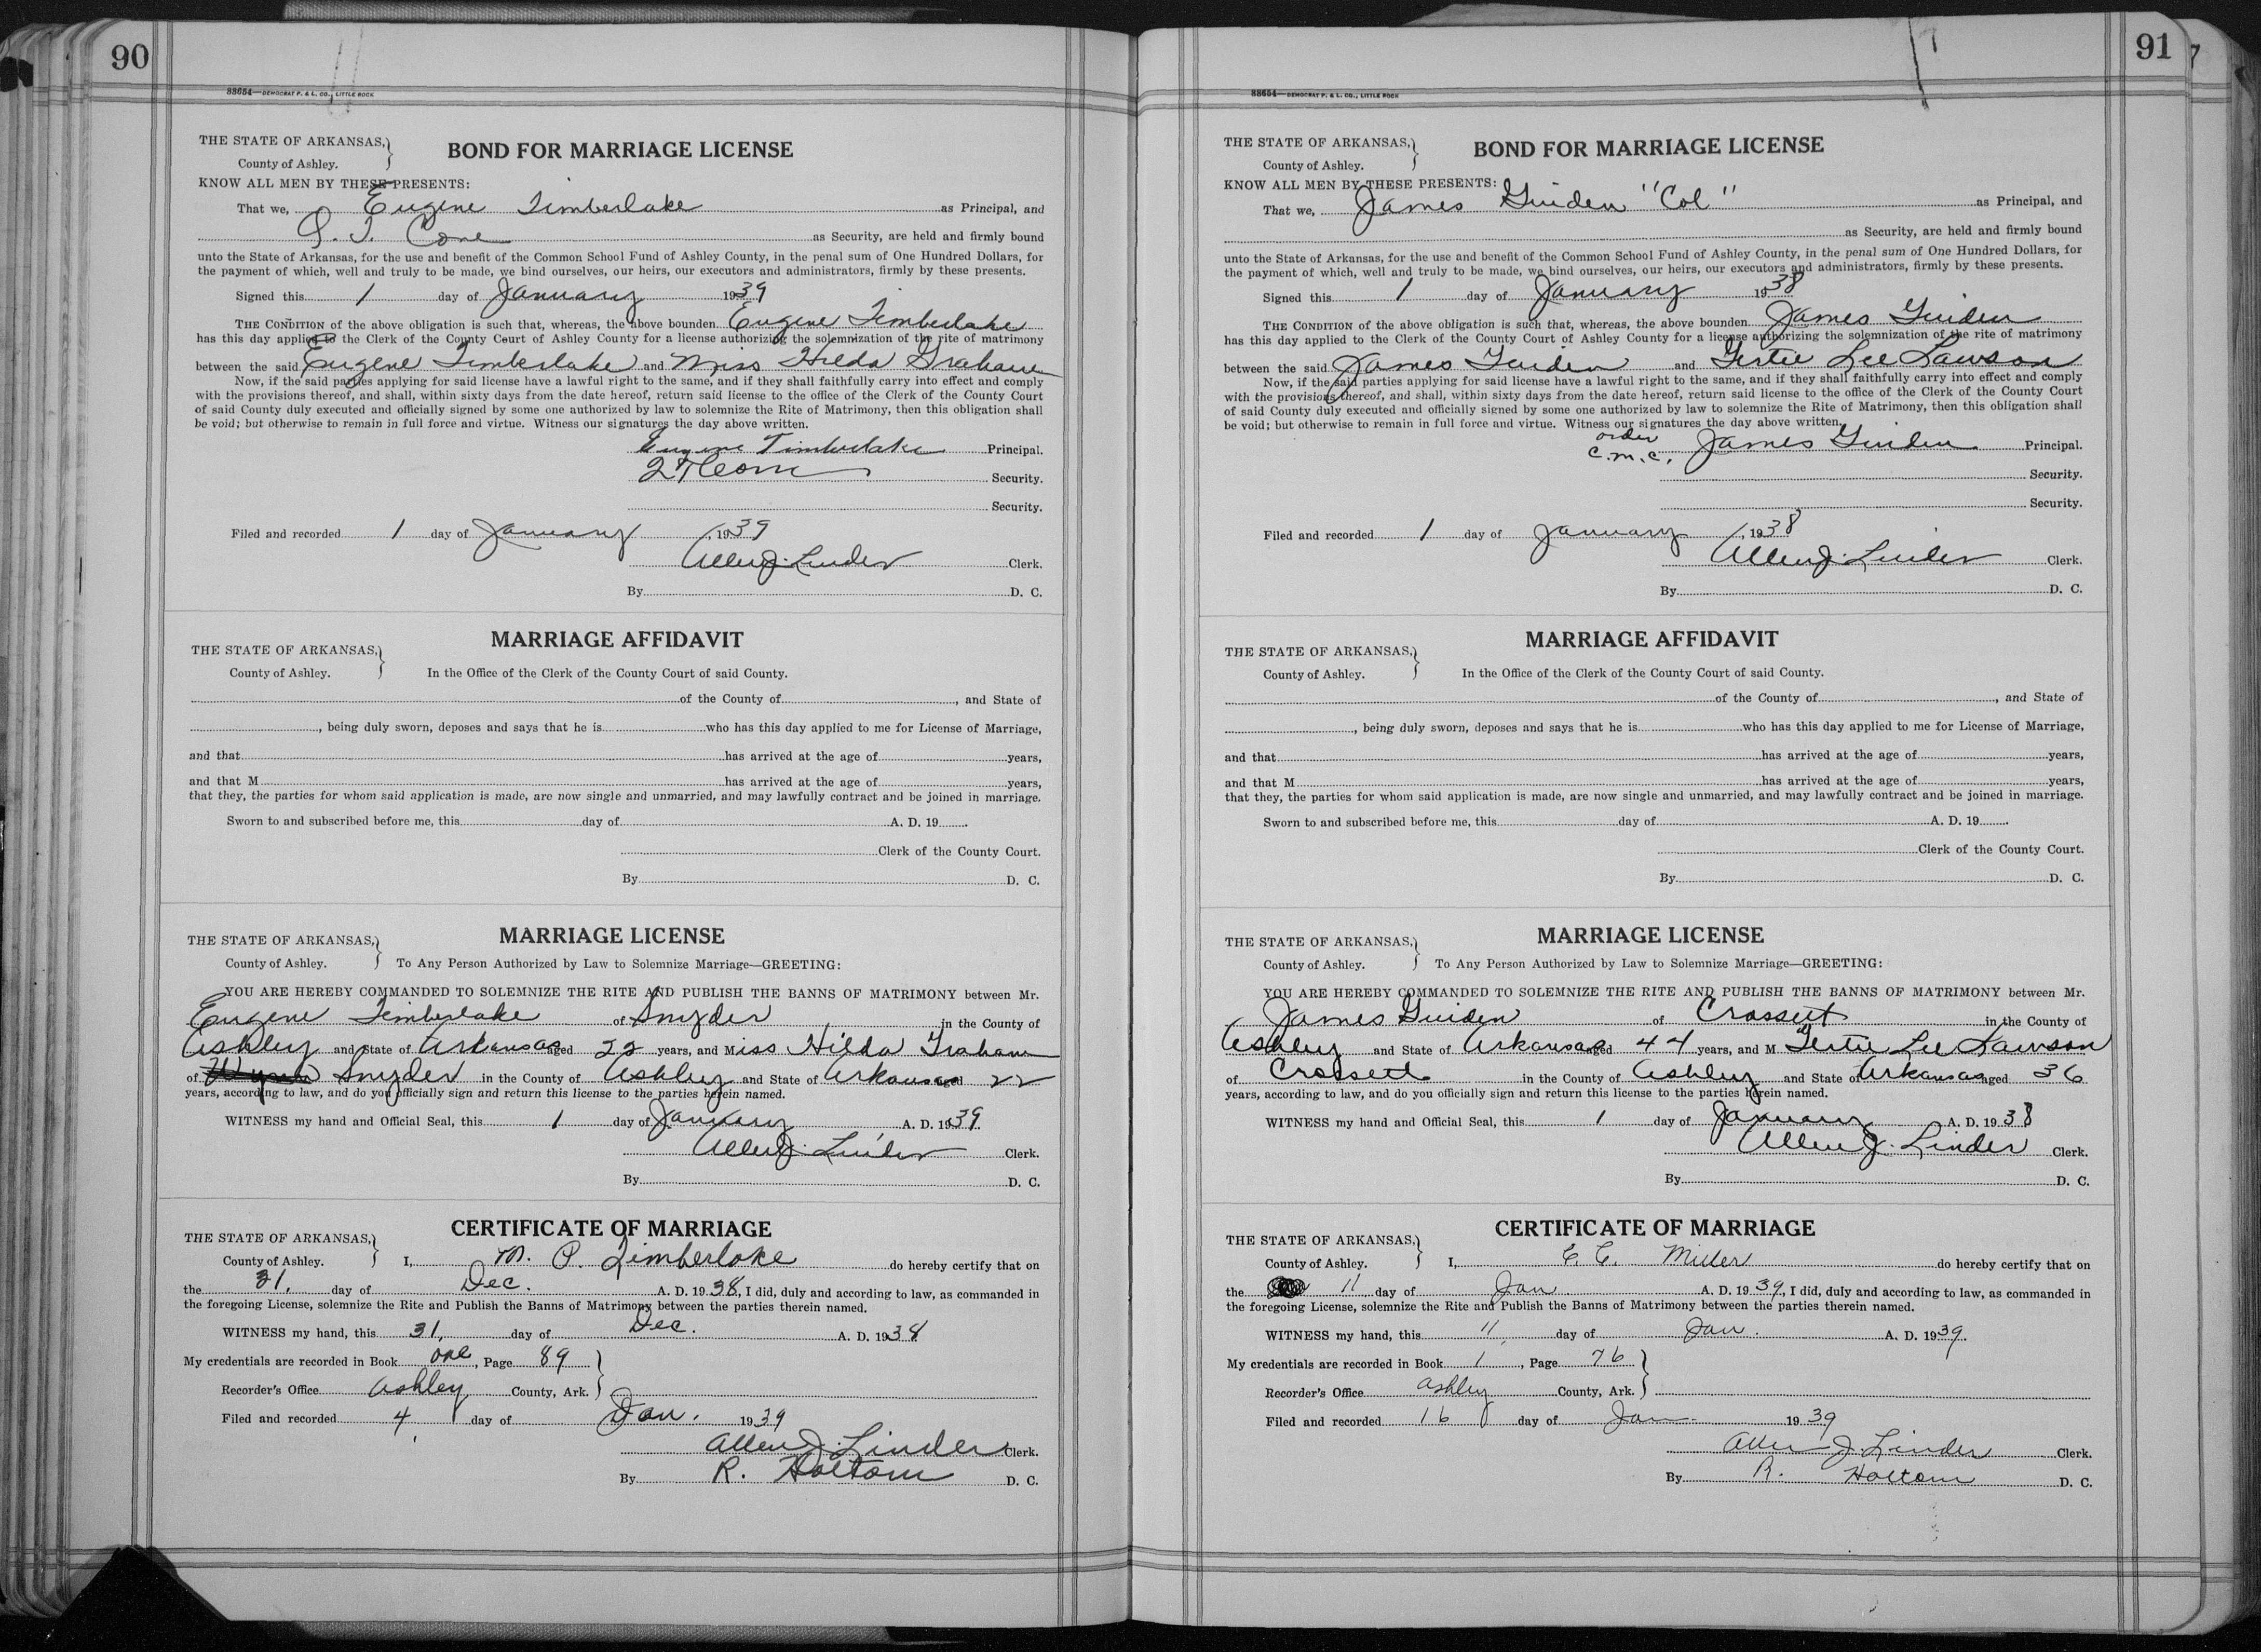 90
88654—DEMOCRAT P. & L. CO., LITTLE ROCK
THE STATE OF ARKANSAS,
County of Ashley.
BOND FOR MARRIAGE LICENSE
KNOW ALL MEN BY THESE PRESENTS:
That we, Eugene Timberlake as Principal, and
as Security, are held and firmly bound
unto the State of Arkansas, for the use and benefit of the Common School Fund of Ashley County, in the penal sum of One Hundred Dollars, for
the payment of which, well and truly to be made, we bind ourselves, our heirs, our executors and administrators, firmly by these presents.
Signed this 1 day of January 1939
THE CONDITION of the above obligation is such that, whereas, the above bounden Eugene Timberlake
has this day applied to the Clerk of the County Court of Ashley County for a license authorizing the solemnization of the rite of matrimony
between the said Eugene Timberlake and Miss Hilda Graham
Now, if the said parties applying for said license have a lawful right to the same, and if they shall faithfully carry into effect and comply
with the provisions thereof, and shall, within sixty days from the date hereof, return said license to the office of the Clerk of the County Court
of said County duly executed and officially signed by some one authorized by law to solemnize the Rite of Matrimony, then this obligation shall
be void; but otherwise to remain in full force and virtue. Witness our signatures the day above written.
Eugene Timberlake Principal.
Security.
Security.
Filed and recorded 1 day of January, 1939
Allen J. Linder Clerk.
By D. C.
MARRIAGE AFFIDAVIT
THE STATE OF ARKANSAS,
County of Ashley.
In the Office of the Clerk of the County Court of said County.
of the County of , and State of
, being duly sworn, deposes and says that he is who has this day applied to me for License of Marriage,
and that has arrived at the age of years,
and that M has arrived at the age of years,
that they, the parties for whom said application is made, are now single and unmarried, and may lawfully contract and be joined in marriage.
Sworn to and subscribed before me, this day of A. D. 19 .
Clerk of the County Court.
By D. C.
MARRIAGE LICENSE
THE STATE OF ARKANSAS,
County of Ashley.
To Any Person Authorized by Law to Solemnize Marriage—GREETING:
YOU ARE HEREBY COMMANDED TO SOLEMNIZE THE RITE AND PUBLISH THE BANNS OF MATRIMONY between Mr.
Eugene Timberlake of Snyder in the County of
Ashley and State of Arkansas aged 22 years, and Miss Hilda Graham
of Snyder in the County of Ashley and State of Arkansas aged 22
years, according to law, and do you officially sign and return this license to the parties herein named.
WITNESS my hand and Official Seal, this 1 day of January A. D. 1939
Allen J. Linder Clerk.
By D. C.
CERTIFICATE OF MARRIAGE
THE STATE OF ARKANSAS,
County of Ashley.
I, M. P. Timberlake do hereby certify that on
the 31. day of Dec. A. D. 1938, I did, duly and according to law, as commanded in
the foregoing License, solemnize the Rite and Publish the Banns of Matrimony between the parties therein named.
WITNESS my hand, this 31, day of Dec. A. D. 1938
My credentials are recorded in Book one, Page 89
Recorder's Office Ashley County, Ark.
Filed and recorded 4 day of Jan. 1939
Allen J. Linder Clerk.
By R. Holtom D. C.
91
88654—DEMOCRAT P. & L. CO., LITTLE ROCK
THE STATE OF ARKANSAS,
County of Ashley.
BOND FOR MARRIAGE LICENSE
KNOW ALL MEN BY THESE PRESENTS:
That we, James Guiden "Col" as Principal, and
as Security, are held and firmly bound
unto the State of Arkansas, for the use and benefit of the Common School Fund of Ashley County, in the penal sum of One Hundred Dollars, for
the payment of which, well and truly to be made, we bind ourselves, our heirs, our executors and administrators, firmly by these presents.
Signed this 1 day of January 1938
THE CONDITION of the above obligation is such that, whereas, the above bounden James Guiden
has this day applied to the Clerk of the County Court of Ashley County for a license authorizing the solemnization of the rite of matrimony
between the said James Guiden and Gertie Lee Lawson
Now, if the said parties applying for said license have a lawful right to the same, and if they shall faithfully carry into effect and comply
with the provisions thereof, and shall, within sixty days from the date hereof, return said license to the office of the Clerk of the County Court
of said County duly executed and officially signed by some one authorized by law to solemnize the Rite of Matrimony, then this obligation shall
be void; but otherwise to remain in full force and virtue. Witness our signatures the day above written.
order
C.M.C. James Guiden Principal.
Security.
Security.
Filed and recorded 1 day of January, 1938
Allen J. Linder Clerk.
By D. C.
MARRIAGE AFFIDAVIT
THE STATE OF ARKANSAS,
County of Ashley.
In the Office of the Clerk of the County Court of said County.
of the County of , and State of
, being duly sworn, deposes and says that he is who has this day applied to me for License of Marriage,
and that has arrived at the age of years,
and that M has arrived at the age of years,
that they, the parties for whom said application is made, are now single and unmarried, and may lawfully contract and be joined in marriage.
Sworn to and subscribed before me, this day of A. D. 19 .
Clerk of the County Court.
By D. C.
MARRIAGE LICENSE
THE STATE OF ARKANSAS,
County of Ashley.
To Any Person Authorized by Law to Solemnize Marriage—GREETING:
YOU ARE HEREBY COMMANDED TO SOLEMNIZE THE RITE AND PUBLISH THE BANNS OF MATRIMONY between Mr.
James Guiden of Crossett in the County of
Ashley and State of Arkansas aged 44 years, and M Gertie Lee Lawson
of Crossett in the County of Ashley and State of Arkansas aged 36
years, according to law, and do you officially sign and return this license to the parties herein named.
WITNESS my hand and Official Seal, this 1 day of January A. D. 1938
Allen J. Linder Clerk.
By D. C.
CERTIFICATE OF MARRIAGE
THE STATE OF ARKANSAS,
County of Ashley.
I, E. C. Miller do hereby certify that on
the 11 day of Jan A. D. 1939, I did, duly and according to law, as commanded in
the foregoing License, solemnize the Rite and Publish the Banns of Matrimony between the parties therein named.
WITNESS my hand, this 11, day of Jan. A. D. 1939.
My credentials are recorded in Book 1, Page 76
Recorder's Office Ashley County, Ark.
Filed and recorded 16 day of Jan. 1939
Allen J. Linder Clerk.
By R. Holtom D. C.